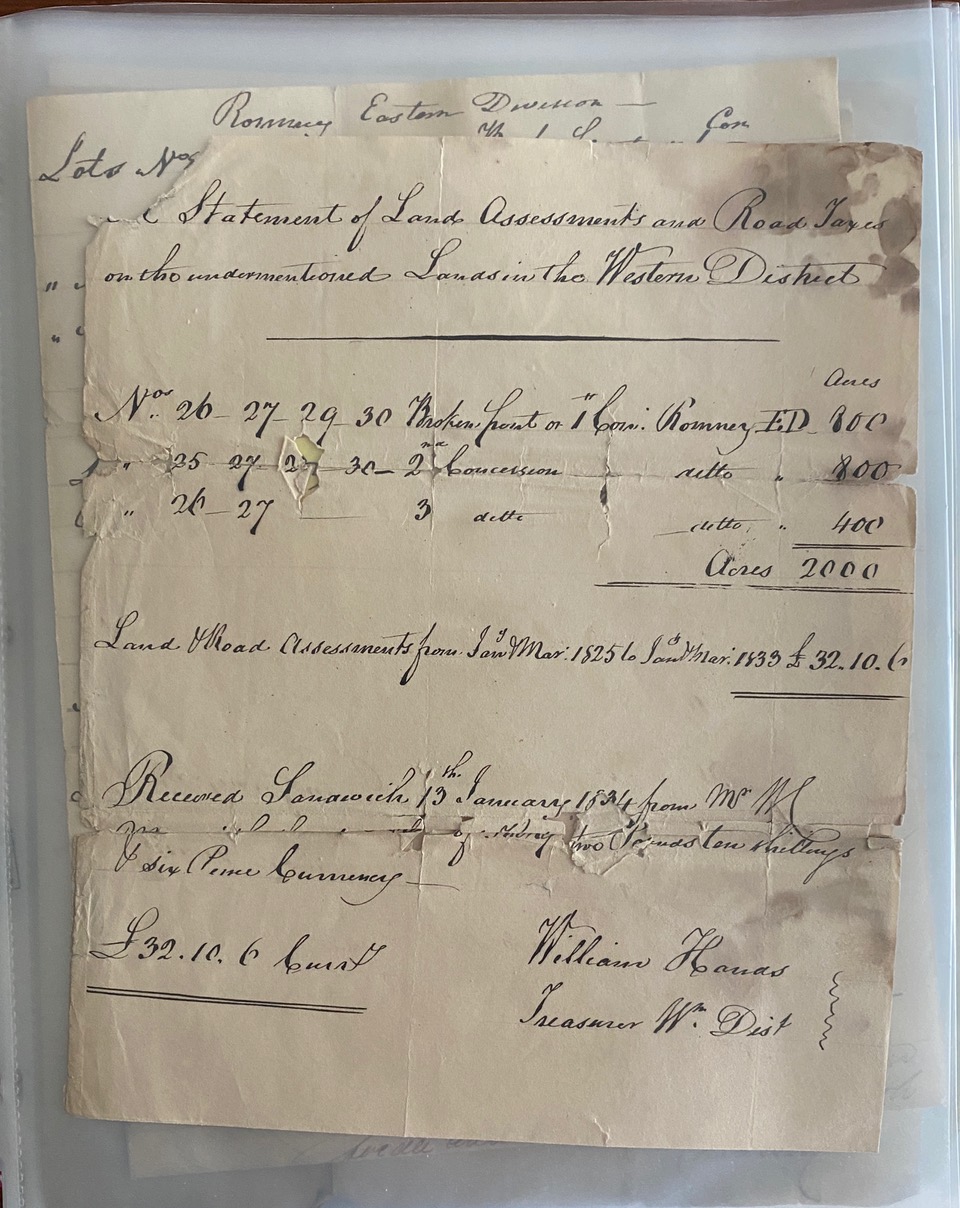 Romney Eastern Division —
Con
Lots Nos
Statement of Land Assessments and Road Taxes
on the undermentioned Lands in the Western District
Acres
Nos. 26 - 27 - 29 - 30 Broken front or 1st Con. Romney E.D - 800
" 25 27 30 - 2nd Concession ditto " 800
" 26 - 27 — 3 ditto ditto " 400
Acres 2000
Land & Road Assessments from Jany & Mar. 1825 to Jany & Mar. 1833 £ 32.10.6
Received Sandwich 13th. January 1834 from Mr W
of thirty two Pounds ten shillings
& six Pence Currency —
£32.10.6 Curry
William Hands
Treasurer Wn. Dist